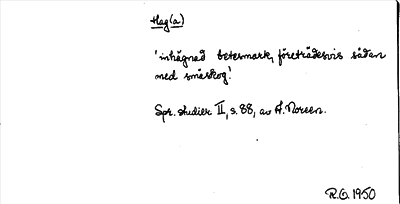 Hag(a)
'inhägnad betesmark, företrädesvis sådan
med småskog'.
Spr. studier II, s. 88, av A. Noreen.
R.O. 1950